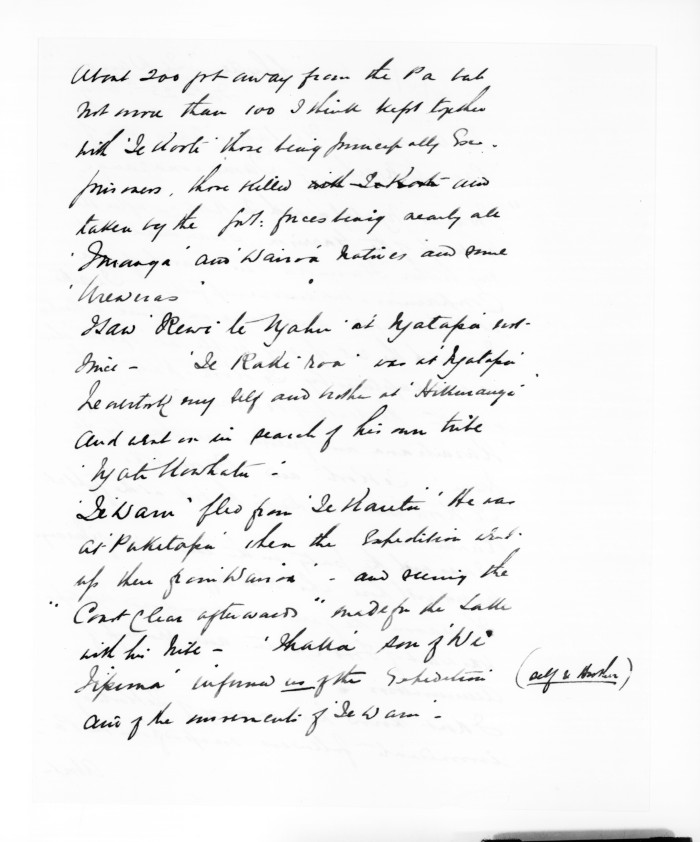 About 200 got away from the Pa but
not more than 100 I think kept together
with 'Te Kooti' those being principally Ex-
prisoners, those killed with Te Kooti and
taken by the Govt: forces being nearly all
and 'Wairoa' Natives and some
'Urewera's'
I saw 'Rewi te at Ngatapa
twice - 'Te Raki roa' was at 'Ngatapa'
he overtook my self and brother at 'Hikurangi'
and went on in search of his own tribe
'Ngati Kowhatu' -
'Te Waru' fled from He was
at 'Puketapu' when the Expedition went
up there from 'Wairoa' - and seeing the
"Coast Clear afterwards" made for the Lake
with his tribe - son of 'Wi
informed us of the Expedition (self & brother)
and of the movements of 'Te Waru' -